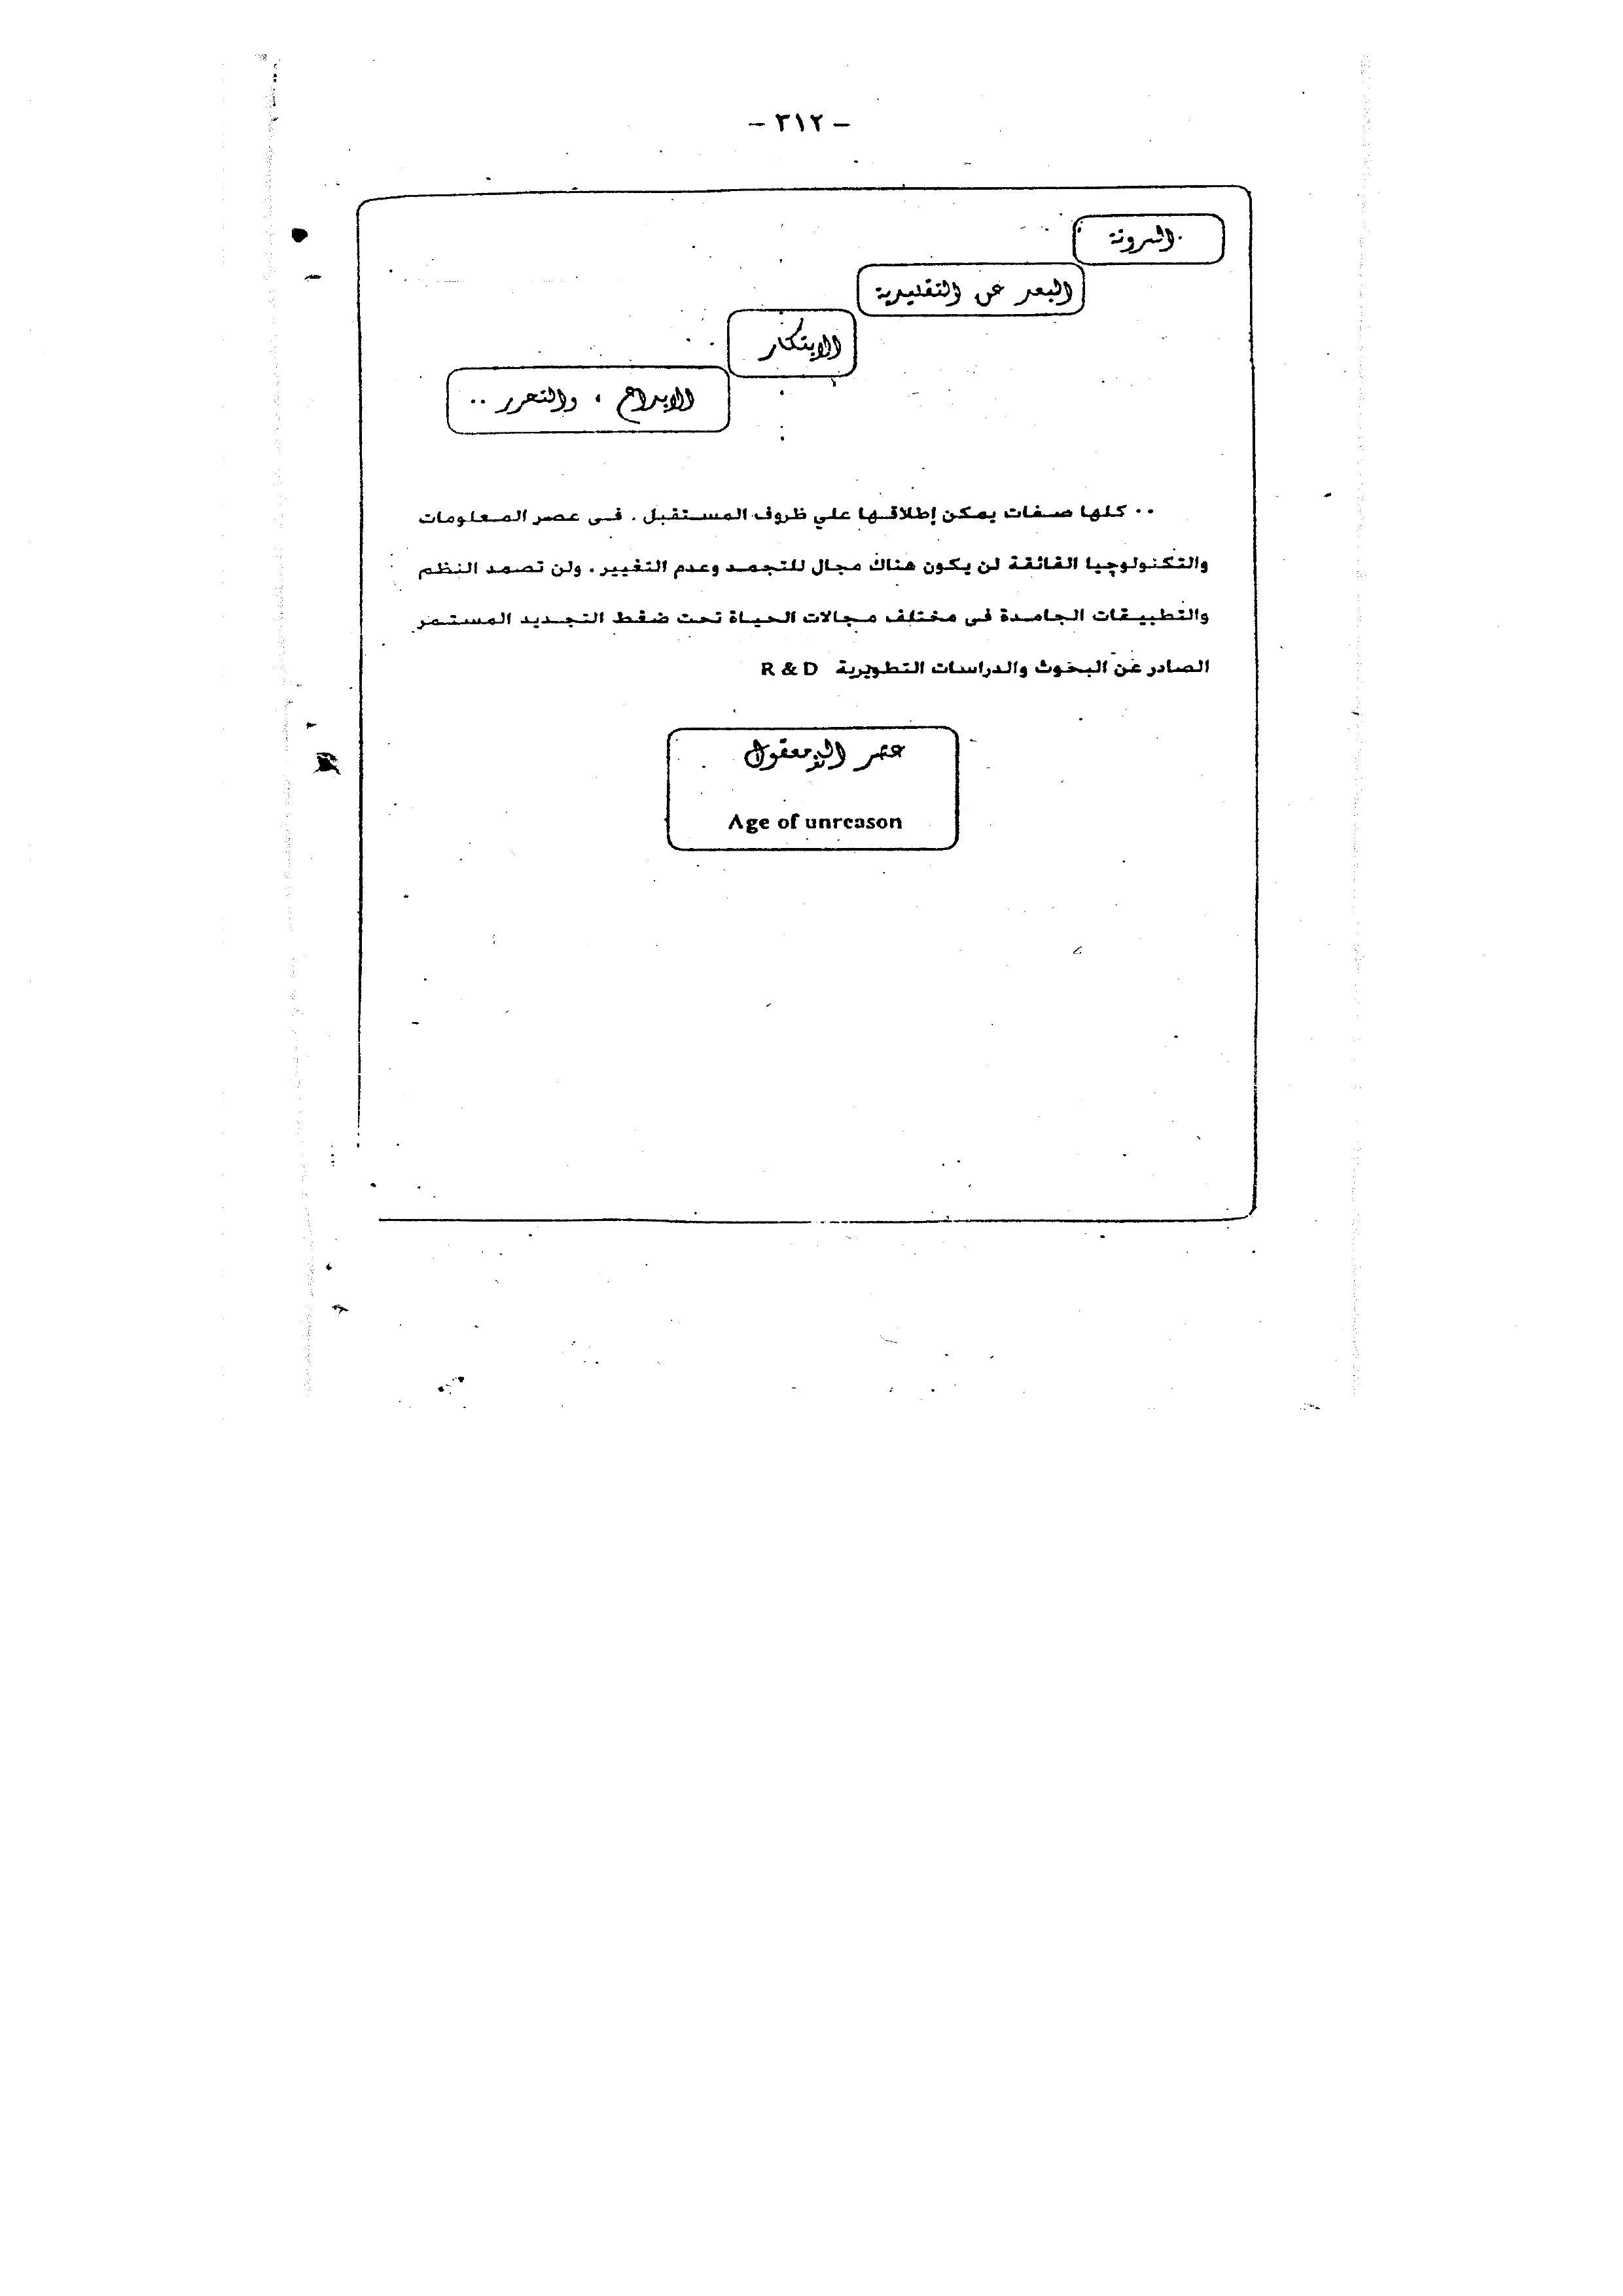 - ٣١٢ -
المرونة
البعد عن التقليدية
الابتكار
الإبداع ، والتحرر ..
.. كلها صفات يمكن إطلاقها علي ظروف المستقبل . فى عصر المعلومات
والتكنولوچيا الفائقة لن يكون هناك مجال للتجمد وعدم التغيير . ولن تصمد النظم
والتطبيقات الجامدة فى مختلف مجالات الحياة تحت ضغط التجديد المستمر
الصادر عن البحوث والدراسات التطويرية R & D
عصر اللامعقول
Age of unreason